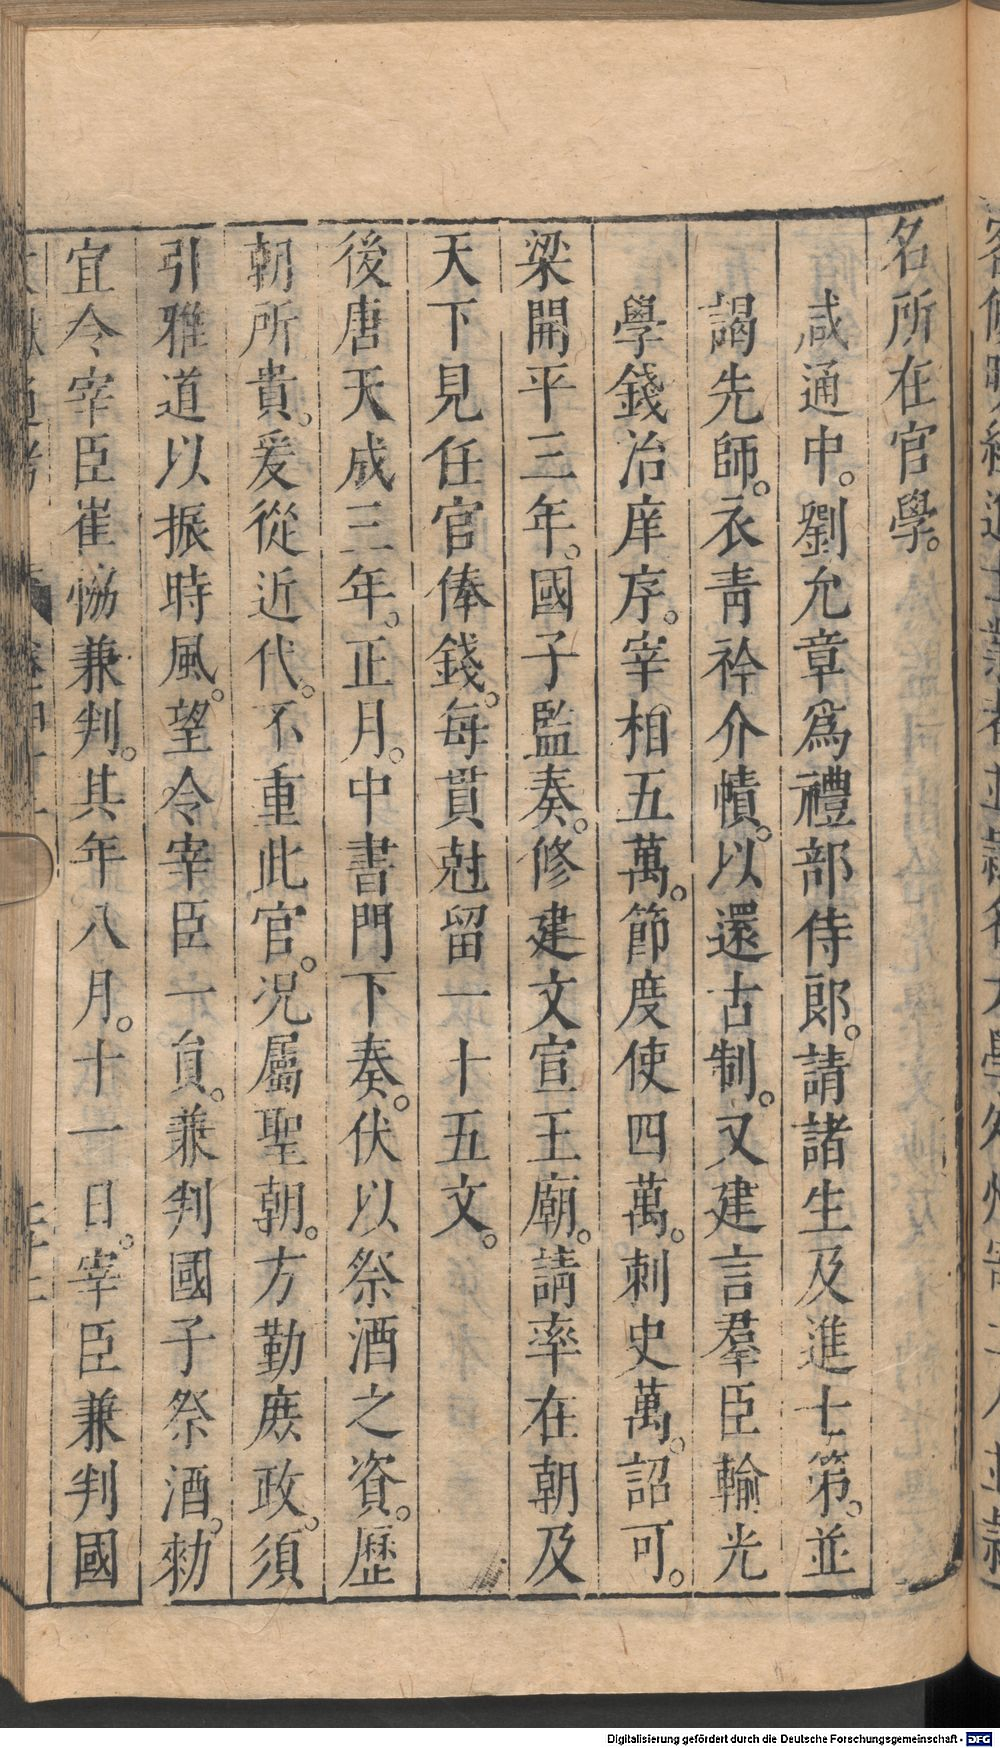 名所在官學。
咸通中。劉允章爲禮部侍郎。請諸生及進士第。並
謁先師。衣青衿介幘。以還古制。又建言羣臣輸光
學錢治庠序。宰相五萬。節度使四萬。刺史萬。詔可。
梁開平三年。國子監奏。修建文宣王廟。請率在朝及
天下見任官俸錢。每貫尅留一十五文。
後唐天成三年。正月。中書門下奏。伏以祭酒之資。歷
朝所貴。爰從近代。不重此官。況屬聖朝。方勤庶政。須
引雅道以振時風。望令宰臣一員。兼判國子祭酒。勑
宜令宰臣崔恊兼判。其年八月。十一日。宰臣兼判國
Digitalisierung gefördert durch die Deutsche Forschungsgemeinschaft - DFG